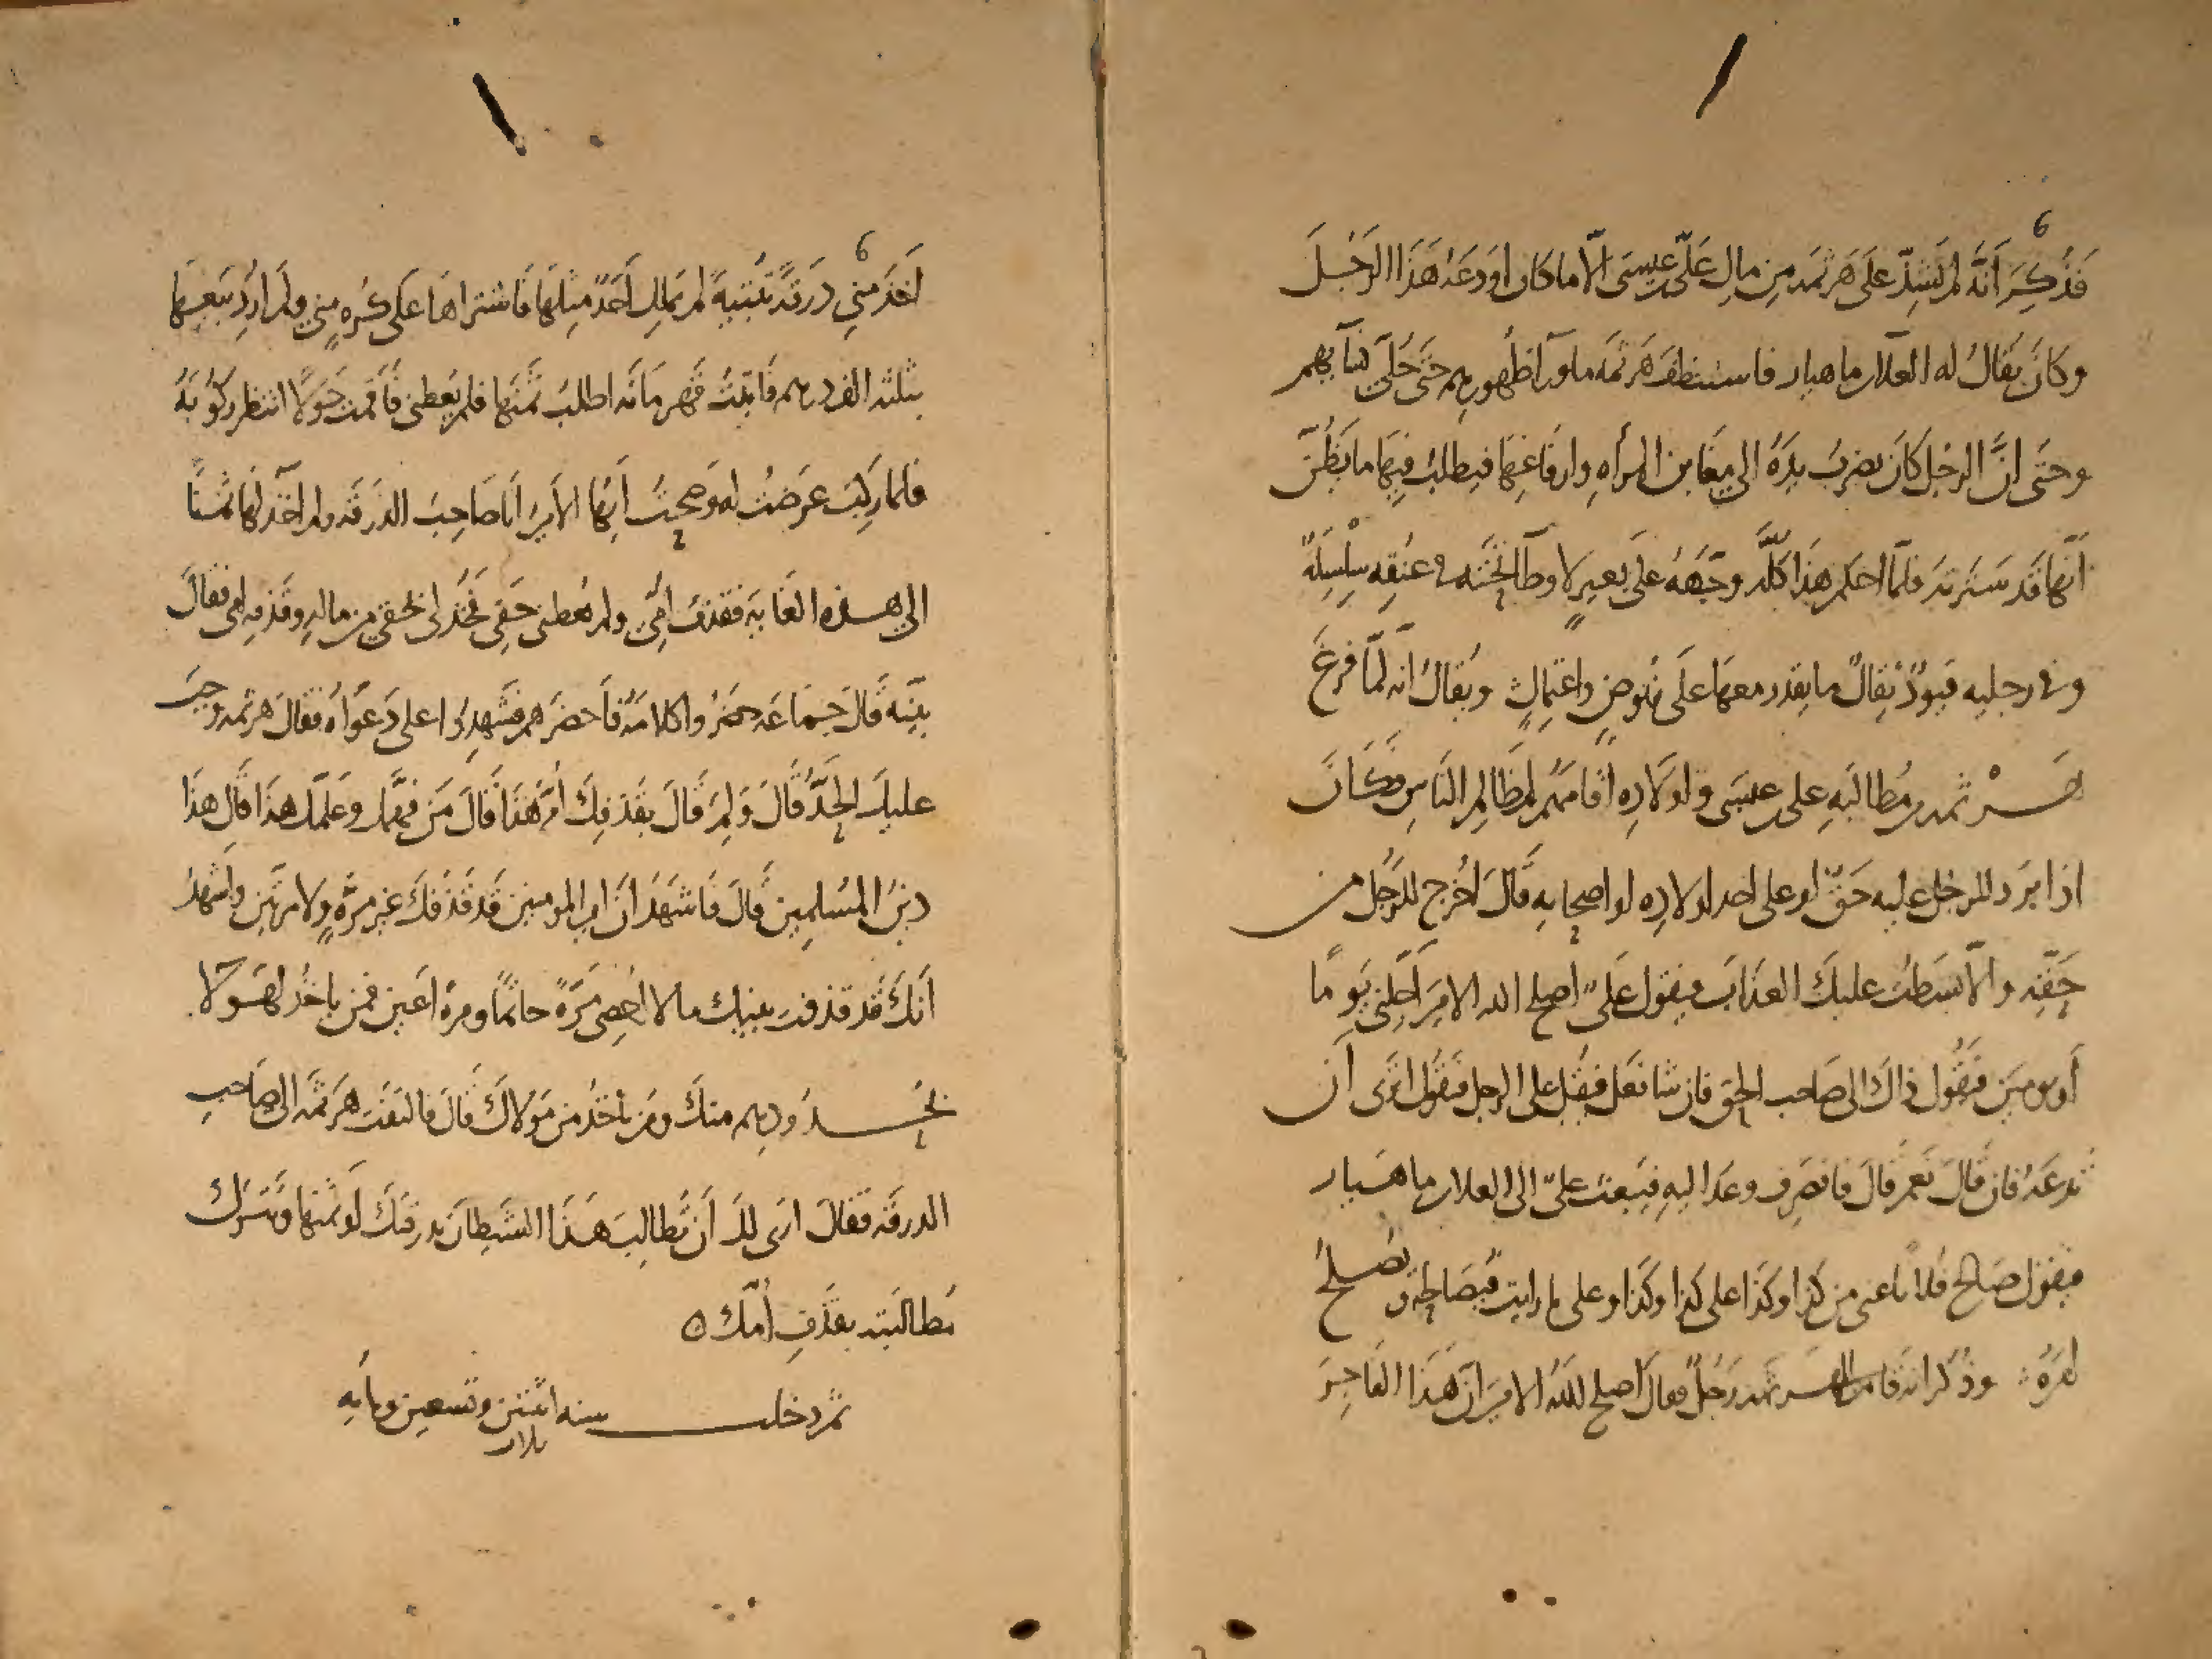 فَذُكِرَ أنّه لم يَشِذّ على هَرثمه من مالِ علىّ بن عيسى الّا ما كان اودعَهُ هَذا الرَجُلَ
وكانَ يُقالُ له العلآ بن ماهبار فاستنظفَ هَرثمَه ما ورآ ظُهورهم حَتّى حُلىّ نسآيهم
وحتى انّ الرجل كان يضربُ بيدِهُ الى مغابن المرأهِ وارفَاغِهَا فيطلبُ فيهَا ما يَظُنّ
أنّهَا قد سَترته فلمّا احكم هذا كلّه وجّهَهُ على بَعيرٍ لا وطآ تحته فى عنُقِه سِلْسِلهٌ
وفى رجليه قيودٌ ثِقالٌ ما يقدر معها على نُهوضٍ واعتمالٍ ويُقالُ انه لمّا فرغَ
هَرْثمه من مُطالبهِ على بن عيسى واولادِه اقامَهم لمظالمِ الناسِ فكانَ
اذا بَرد للرجل عليه حَقٌّ او على احد اولادِه او اصحابِه قال اخرُج للرَّجُل من
حَقّه والّا بسَطتُ عليكَ العذابَ فيقول علىّ اصلح الله الاميرَ اجّلنى يَومًا
أو يومين فيقُول ذاك الى صَاحب الحق فان شا فعَل فيُقبل على الرجل فيقول اترى ان
تدعَهُ فان قالَ نَعَم قال فانصَرِف وعد اليهِ فيَبعث علىّ الى العلا بن ماهبار
فيقول صَالح فلانًا عنى من كذا وكذَا على كذا وكذا وعلى ما رايت فيُصَالحُه ويُصلحُ
امرَهُ ۞ وذُكر انه قام الى هرثمه رَجُلٌ فقال اصلح اللهُ الاميرَ انّ هَذا الفاجِرَ
أخذ منى دَرَقةً ثمينهً لم يَملك أحَدٌ مثلها فاشتراها على كُرهٍ منى ولم ارِد بيعها
بثلثه الف درهم فاتيتُ قهرمَانَه اطلبُ ثمنَها فلم يُعطنى فاقمت حَولًا انتظر ركُوبَهُ
فلما ركب عرَضتُ له وصحتُ ايّهَا الاميرُ انا صَاحِبُ الدَرَقه ولم آخذ لها ثَمنًا
الى هذه الغايَه فقذف امّى ولم يُعطنى حَقى فخُذ لى بحقى من ماله وقَذفِه امى فقالَ
بيّنَه قالَ جماعَه حَضرُوا كلامَهُ فاحضرَهم فشهِدُوا على دَعوَاهُ فقال هرثمه وجبَ
عليكَ الحَدّ قالَ ولِمَ قالَ بقَذفِكَ امَّ هَذا قالَ مَن فقّهك وعلّمك هذا قال هَذا
دينُ المُسلِمين قال فاشهَدُ ان امير المومنين قد قذفَكَ غير مرّهٍ ولا مرّتين واشهَدُ
انّكَ قد قذفت بنيك مالا اُحصى مَرّهً حاتمًا ومرهً اعين فمن ياخذ لهَوُلا
بحُدودهم منك ومَن ياخذُ من مَولاكَ قالَ فالتفتَ هَرثمه الى صَاحبِ
الدرقه فقالَ ارَى لكَ أن تُطالبَ هَذا الشيطانَ بدرقتكَ او ثمنها وتتركُ
مُطالبَته بقذفِ اُمّك ۞
ثم دخلت سنه اثنتين وتسعين ومايه